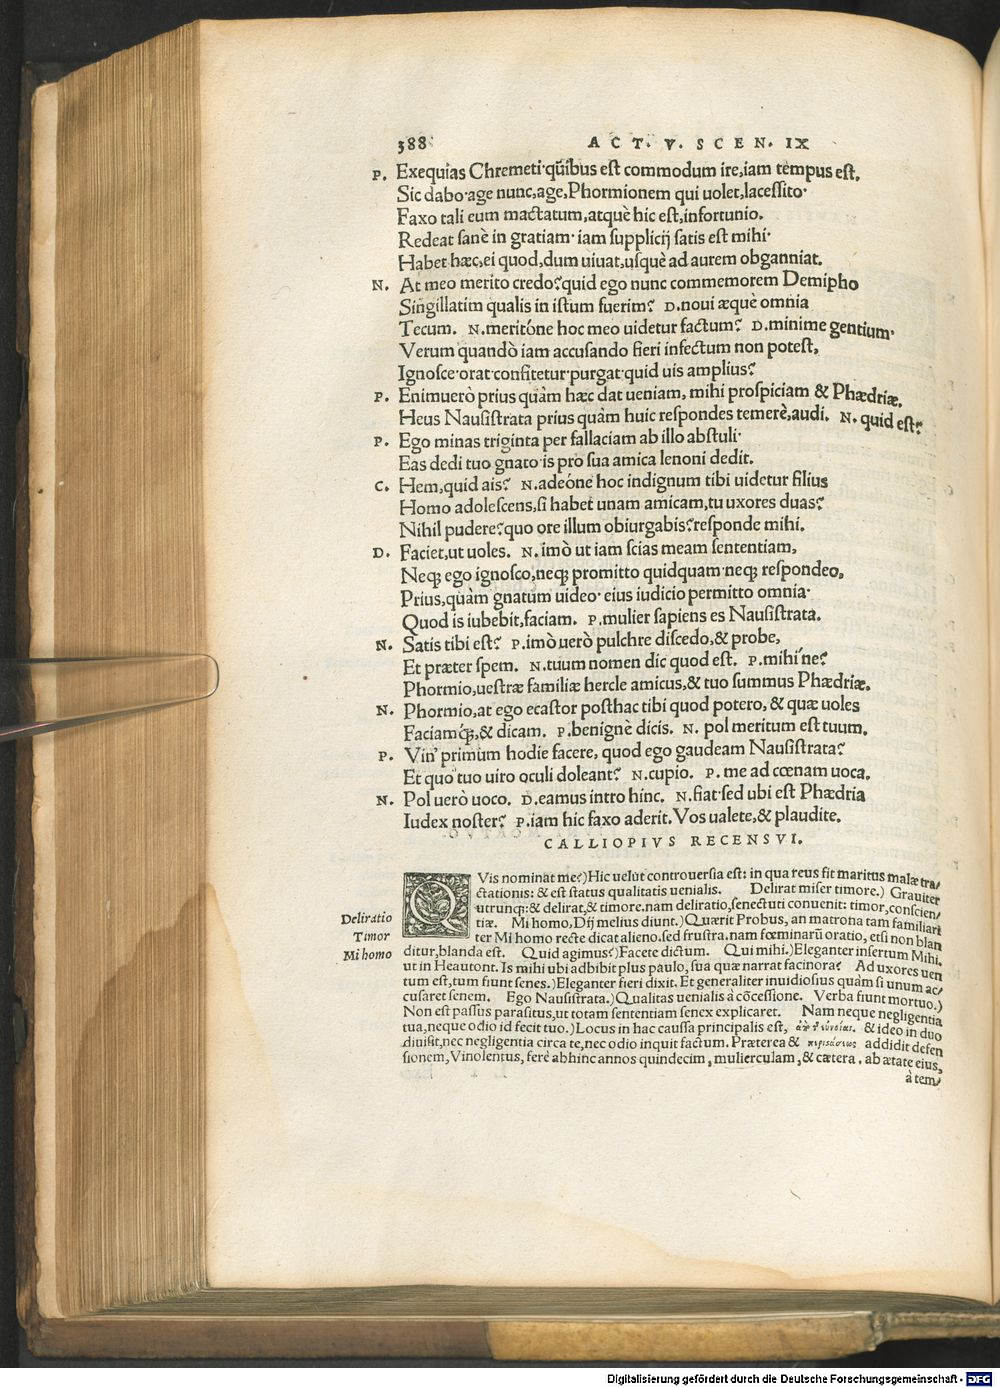 388 ACT. V. SCEN. IX
P. Exequias Chremeti·quibus est commodum ire, iam tempus est.
Sic dabo·age nunc, age, Phormionem qui uolet, lacessito·
Faxo tali eum mactatum, atquè hic est, infortunio.
Redeat sanè in gratiam· iam supplicij satis est mihi·
Habet hæc, ei quod, dum uiuat, usquè ad aurem obganniat.
N. At meo merito credo? quid ego nunc commemorem Demipho
Singillatim qualis in istum fuerim? D. noui æquè omnia
Tecum. N. meritóne hoc meo uidetur factum? D. minime gentium·
Verum quandò iam accusando fieri infectum non potest,
Ignosce·orat·confitetur·purgat·quid uis amplius?
P. Enimuerò prius quàm hæc dat ueniam, mihi prospiciam & Phædriæ.
Heus Nausistrata prius quàm huic respondes temerè, audi. N. quid est?
P. Ego minas triginta per fallaciam ab illo abstuli·
Eas dedi tuo gnato·is pro sua amica lenoni dedit.
C. Hem, quid ais? N. adeóne hoc indignum tibi uidetur filius
Homo adolescens, si habet unam amicam, tu uxores duas?
Nihil pudere? quo ore illum obiurgabis? responde mihi.
D. Faciet, ut uoles. N. imò ut iam scias meam sententiam,
Neq; ego ignosco, neq; promitto quidquam·neq; respondeo,
Prius, quàm gnatum uideo· eius iudicio permitto omnia·
Quod is iubebit, faciam. P. mulier sapiens es Nausistrata.
N. Satis tibi est? P. imò uerò pulchre discedo, & probe,
Et præter spem. N. tuum nomen dic quod est. P. mihi'ne?
Phormio, uestræ familiæ hercle amicus, & tuo summus Phædriæ.
N. Phormio, at ego ecastor posthac tibi quod potero, & quæ uoles
Faciamq́;, & dicam. P. benignè dicis. N. pol meritum est tuum.
P. Vin' primum hodie facere, quod ego gaudeam Nausistrata?
Et quo tuo uiro oculi doleant? N. cupio. P. me ad cœnam uoca.
N. Pol uerò uoco. D. eamus intro hinc. N. fiat·sed ubi est Phædria
Iudex noster? P. iam hic faxo aderit. Vos ualete, & plaudite.
CALLIOPIVS RECENSVI.
QVis nominat me?) Hic uelut controuersia est: in qua reus fit maritus malæ tra/
ctationis: & est status qualitatis uenialis. Delirat miser timore.) Grauiter
utrunq;: & delirat, & timore. nam deliratio, senectuti conuenit: timor, conscien/
Deliratio
tiæ. Mi homo, Dij melius diunt.) Quærit Probus, an matrona tam familiari
Timor
ter Mi homo recte dicat alieno. sed frustra. nam fœminarū oratio, etsi non blan
Mi homo
ditur, blanda est. Quid agimus?) Facete dictum. Qui mihi.) Eleganter insertum Mihi.
ut in Heautont. Is mihi ubi adbibit plus paulo, sua quæ narrat facinora? Ad uxores uen
tum est, tum fiunt senes.) Eleganter fieri dixit. Et generaliter inuidiosius quàm si unum ac/
cusaret senem. Ego Nausistrata.) Qualitas uenialis à cōcessione. Verba fiunt mortuo.)
Non est passus parasitus, ut totam sententiam senex explicaret. Nam neque negligentia
tua, neque odio id fecit tuo.) Locus in hac caussa principalis est, & ideo in duo
diuisit, nec negligentia circa te, nec odio inquit factum. Præterea & addidit defen
sionem, Vinolentus, ferè abhinc annos quindecim, mulierculam, & cætera. ab ætate eius,
à tem/
Digitalisierung gefördert durch die Deutsche Forschungsgemeinschaft - DFG